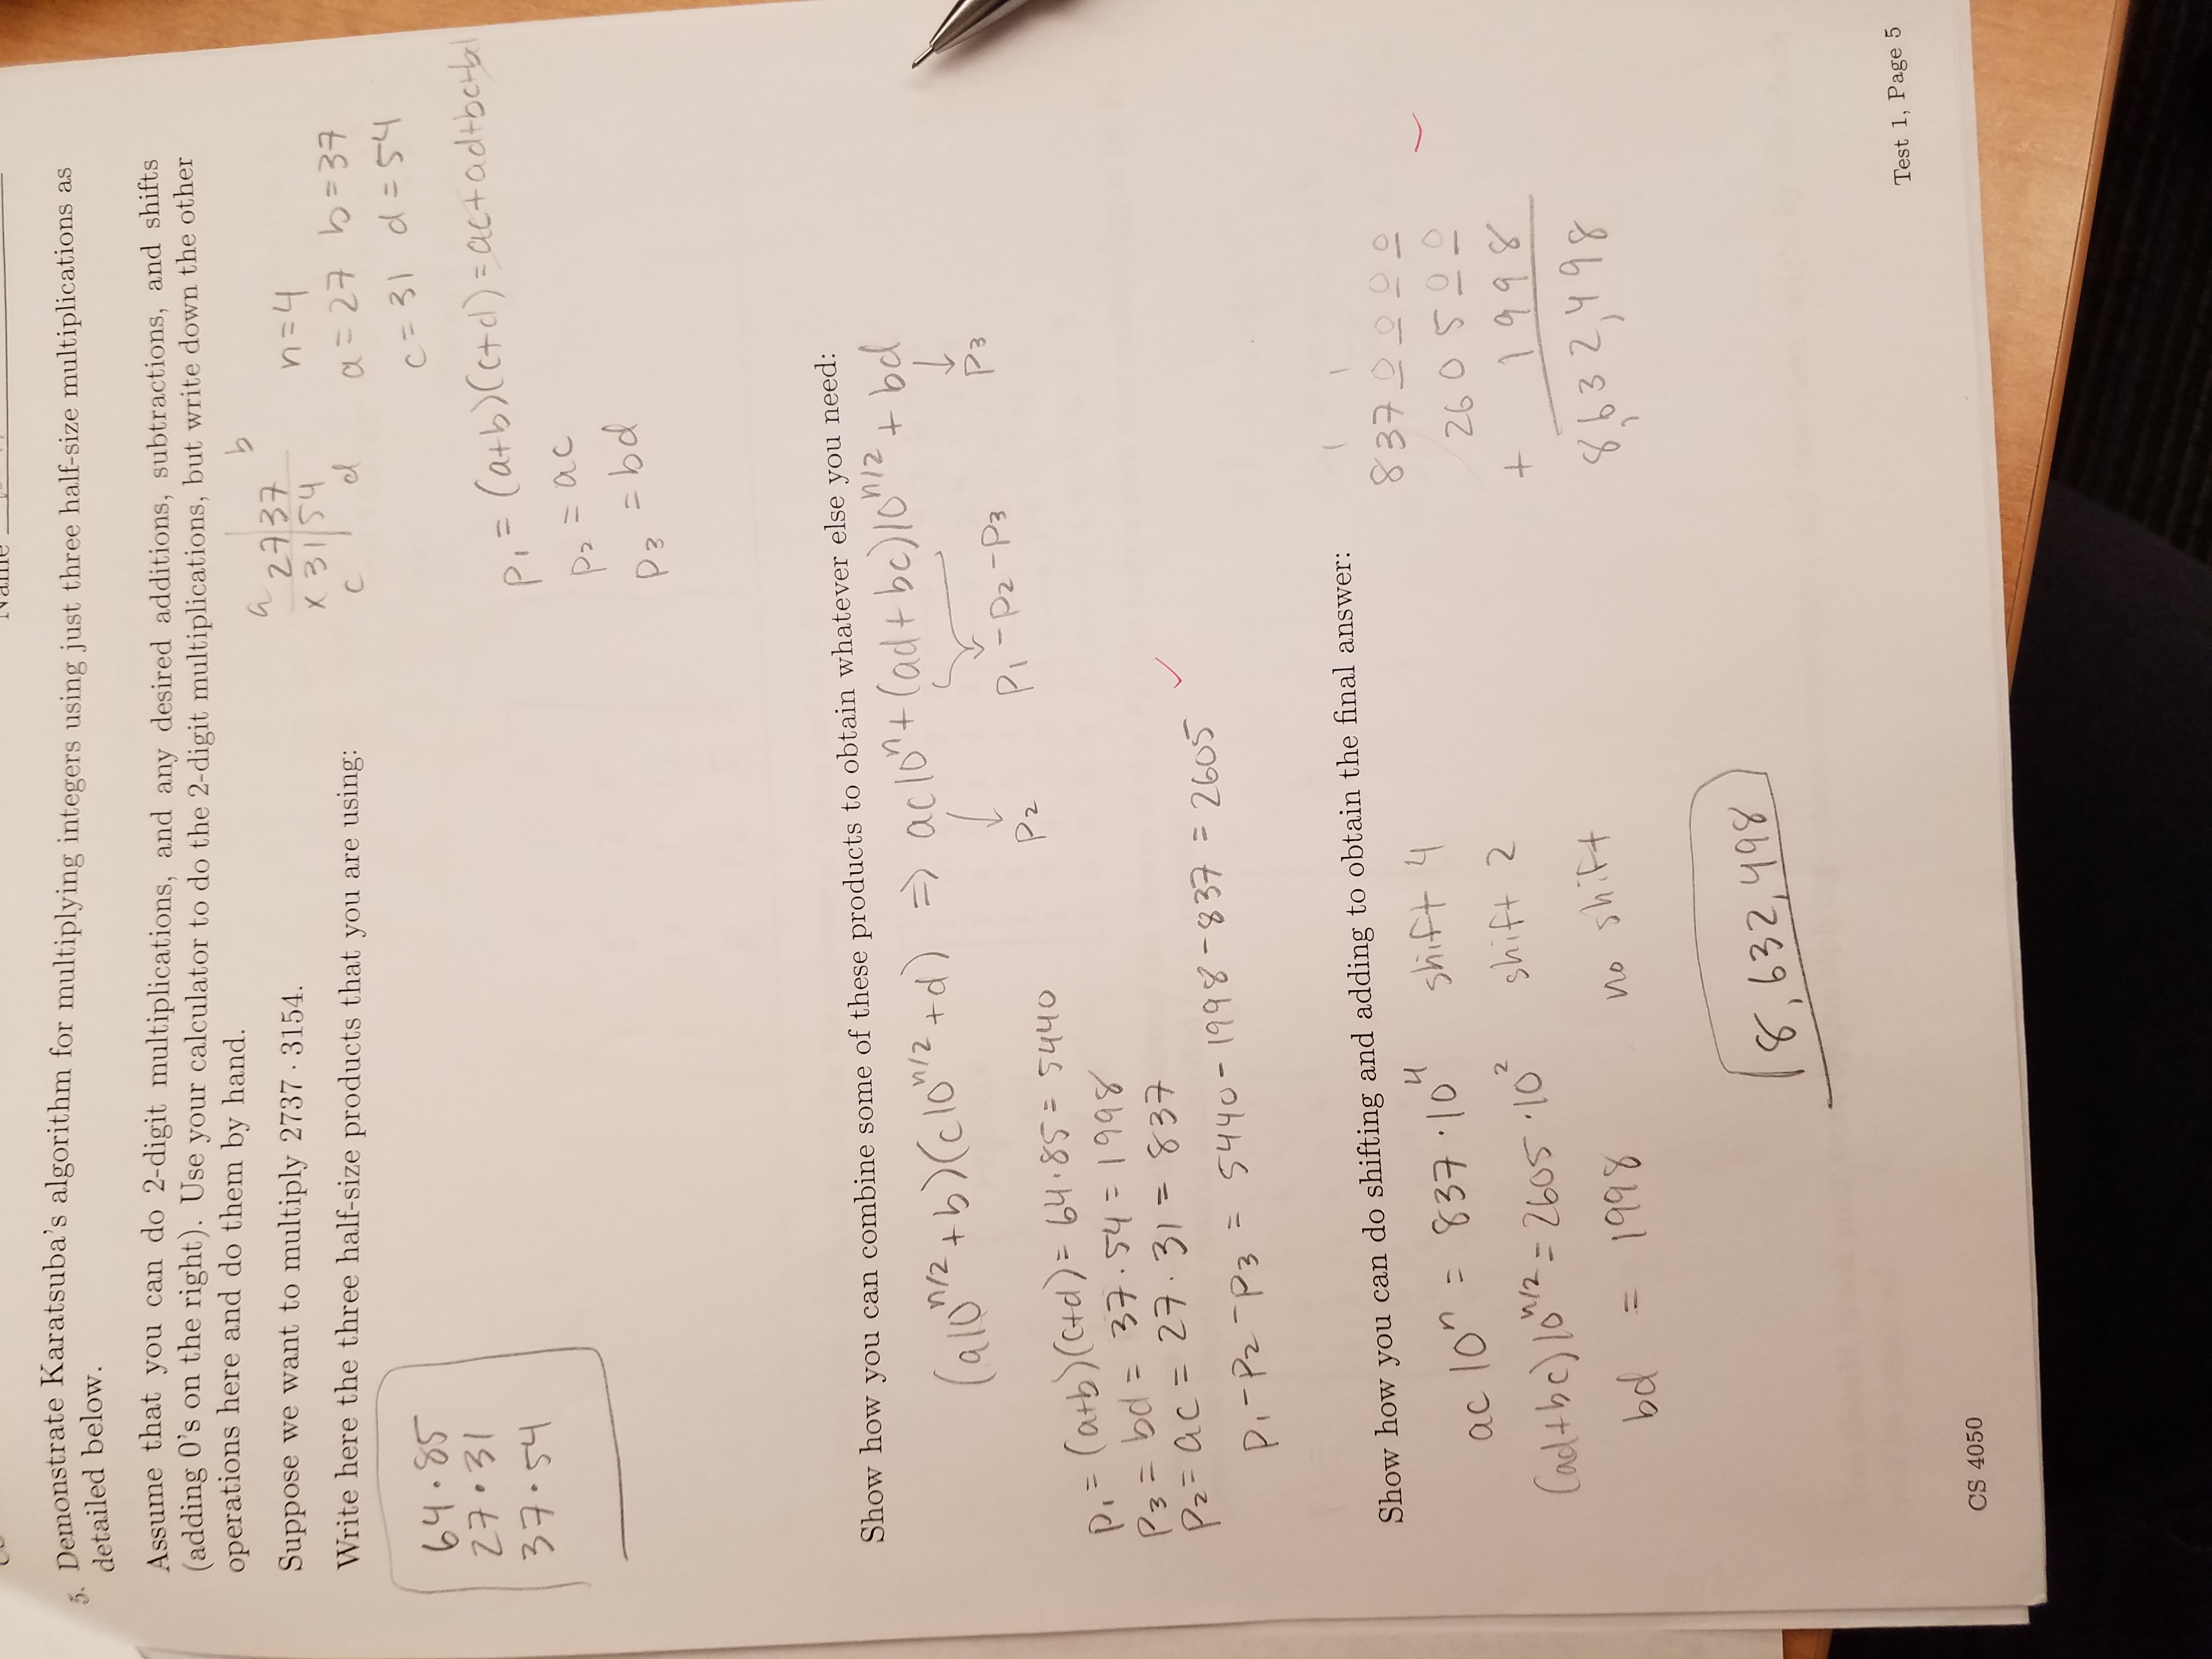 Name
5. Demonstrate Karatsuba's algorithm for multiplying integers using just three half-size multiplications as
detailed below.
Assume that you can do 2-digit multiplications, and any desired additions, subtractions, and shifts
(adding 0's on the right). Use your calculator to do the 2-digit multiplications, but write down the other
operations here and do them by hand.
Suppose we want to multiply 2737 · 3154.
a 27|37 b
x 31|54
c d
n=4
a=27 b=37
c=31 d=54
Write here the three half-size products that you are using:
64·85
27·31
37·54
P₁ = (a+b)(c+d) = ac+ad+bc+bd
P₂ = ac
P₃ = bd
Show how you can combine some of these products to obtain whatever else you need:
(a10^(n/2) + b)(c10^(n/2) + d) ⇒ ac10^n + (ad+bc)10^(n/2) + bd
↓ ↓ ↓
P₂ P₁-P₂-P₃ P₃
P₁ = (a+b)(c+d) = 64·85 = 5440
P₃ = bd = 37·54 = 1998
P₂ = ac = 27·31 = 837
P₁-P₂-P₃ = 5440-1998-837 = 2605 ✓
Show how you can do shifting and adding to obtain the final answer:
ac 10^n = 837·10^4 shift 4
(ad+bc)10^(n/2) = 2605·10^2 shift 2
bd = 1998 no shift
1 1
8370000
260500
+ 1998
8,632,498
8,632,498
Test 1, Page 5
CS 4050